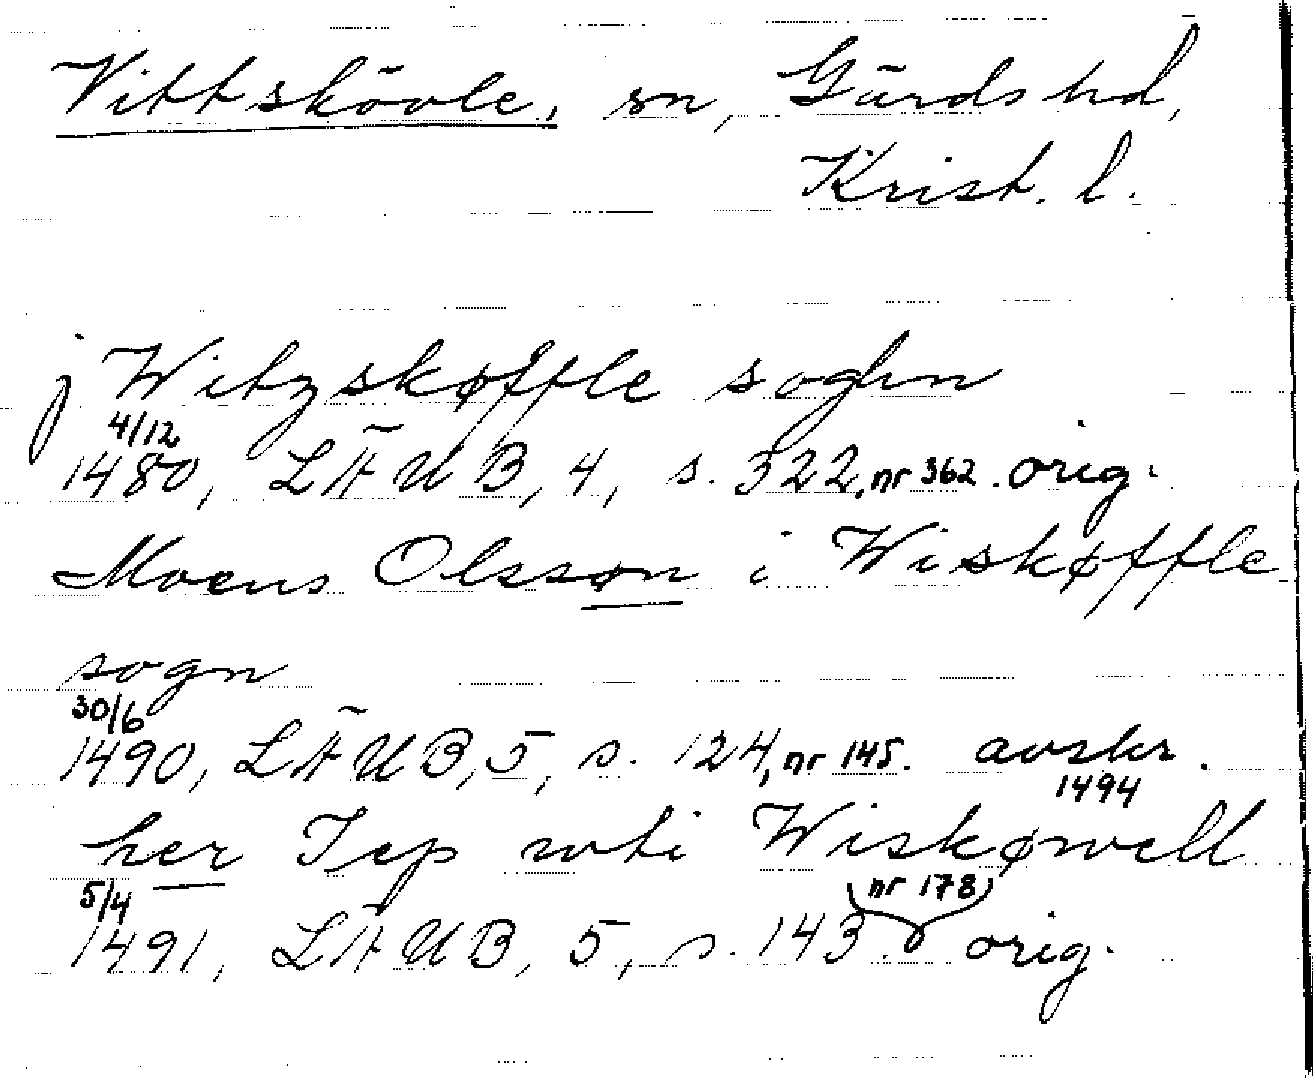 Vittskövle, sn, Gärds hd,
Krist. l.
j Witzskøffle soghn
4/12
1480, LÄUB, 4, s. 322, nr 362. orig.
Moens Olssøn i Wiskøffle
sogn
30/6
1490, LÄUB, 5, s. 124, nr 145. avskr.
1494
her Jep wti Wiskøwell
5/4 nr 178
1491, LÄUB, 5, s. 143. orig.